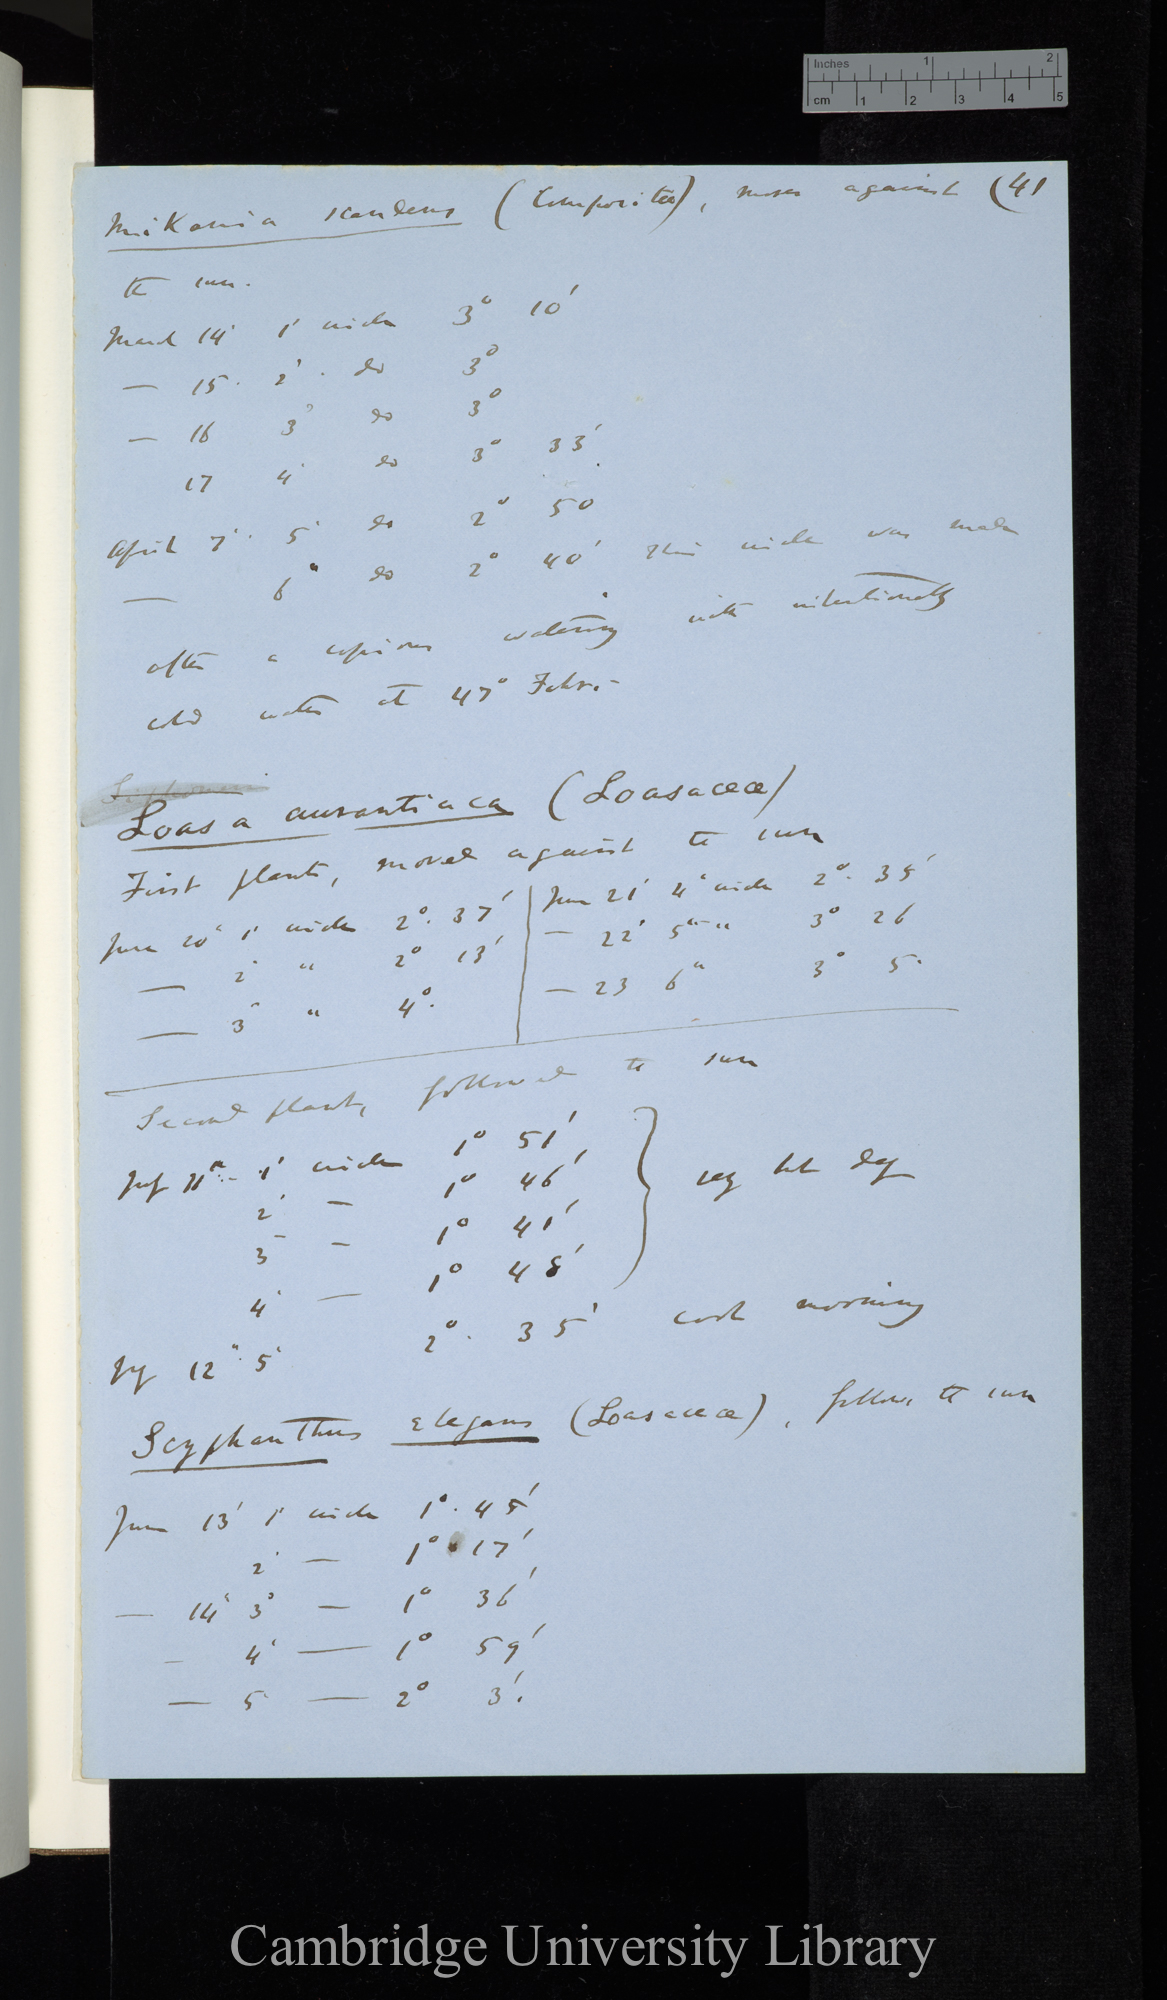 Inches 1 2
cm 1 2 3 4 5
Mikania scandens (Compositæ), moves against (41
the sun.
March 14' 1' circle 3° 10'
— 15. 2' . do 3°
— 16 3' do 3°
17 4' do 3° 33'
April 7'. 5' do 2° 50
— 6" do 2° 40' This circle was made
after a copious watering with intentionally
cold water at 47° Fahr.-
Loasa aurantiaca (Loasaceæ)
First plant, moved against the sun
June 20" 1' circle 2°. 37'
— 2' " 2° 13'
— 3" " 4°.
June 21' 4" circle 2°. 35'
— 22' 5" " 3° 26
— 23 6" 3° 5.
Second plant, followed the sun
July 11th. 1' circle 1° 51'
2' — 1° 46'
3 — 1° 41'
4' — 1° 48'
very hot day
July 12". 5' 2°. 35' cool morning
Scyphanthus elegans (Loasaceæ), follows the sun
June 13' 1' circle 1°. 45'
2' — 1° 17'
— 14" 3' — 1° 36'
— 4' — 1° 59'
— 5 — 2° 3'.
Cambridge University Library